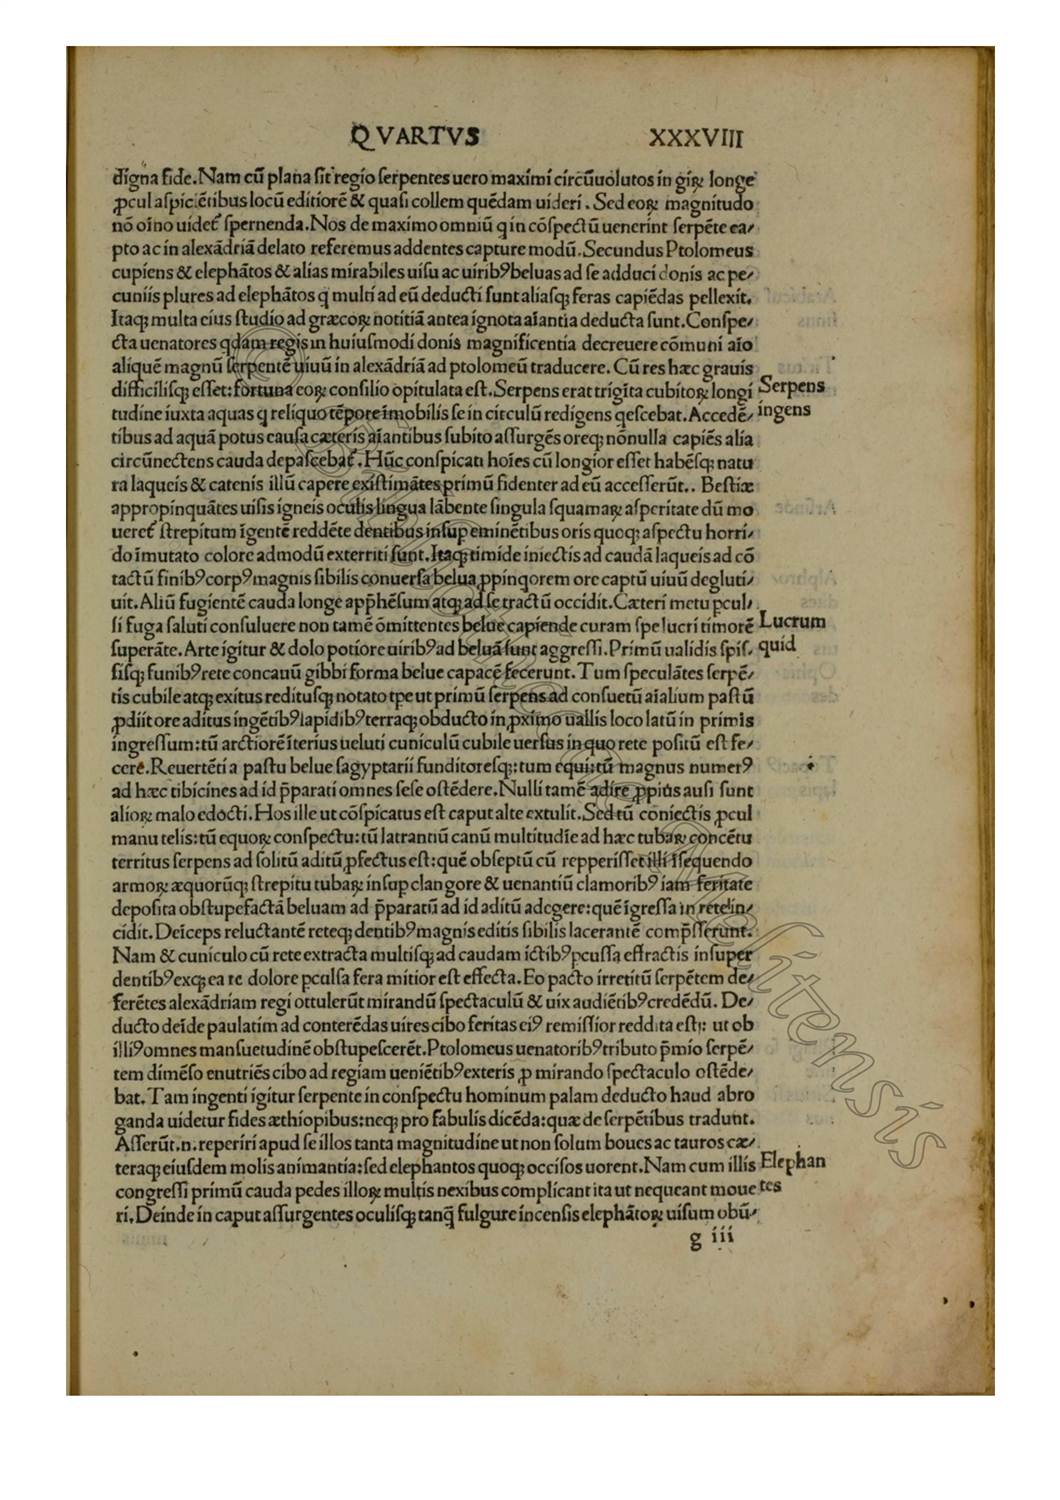 QVARTVS XXXVIII
digna fide. Nam cū plana sit regio serpentes uero maximi circūuolutos in giꝝ longe
ꝓcul aspiciētibus locū editiorē & quasi collem quēdam uideri. Sed eoꝝ magnitudo
nō oīno uidet᷑ spernenda. Nos de maximo omniū q in cōspectū uenerint serpēte ca⸗
pto ac in alexādriā delato referemus addentes capture modū. Secundus Ptolomeus
cupiens & elephātos & alias mirabiles uisu ac uirib⁹ beluas ad se adduci donis ac pe⸗
cuniis plures ad elephātos q̄ multi ad eū deducti sunt aliasqꝫ feras capiēdas pellexit.
Itaqꝫ multa eius studio ad græcoꝝ notitiā antea ignota aīantia deducta sunt. Conspe⸗
cta uenatores qdam regis in huiusmodi donis magnificentia decreuere cōmuni aīo
aliquē magnū serpentē uiuū in alexādriā ad ptolomeū traducere. Cū res hæc grauis
difficilisqꝫ esset: fortuna eoꝝ consilio opitulata est. Serpens erat trigīta cubitoꝝ longi
Serpens
tudine iuxta aquas q reliquo tēpore īmobilis se in circulū redigens qescebat. Accedē⸗
ingens
tibus ad aquā potus causa cæteris aīantibus subito assurgēs oreqꝫ nōnulla capiēs alia
circūnectens cauda depascebat᷑. Hūc conspicati hoīes cū longior esset habēsqꝫ natu
ra laqueis & catenis illū capere existimātes primū fidenter ad eū accesserūt.. Bestiæ
appropinquātes uisis igneis oculis lingua lābente singula squamaꝝ asperitate dū mo
ueret᷑ strepitum īgentē reddēte dentibus insup eminētibus oris quoqꝫ aspectu horri⸗
do īmutato colore admodū exterriti sunt. Itaqꝫ timide iniectis ad caudā laqueis ad cō
tactū finib⁹ corp⁹ magnis sibilis conuersa belua ꝓpinqorem ore captū uiuū degluti⸗
uit. Aliū fugientē cauda longe app̄hēsum atqꝫ ad se tractū occidit. Cæteri metu pcul⸗
si fuga saluti consuluere non tamē ōmittentes belue capiende curam spe lucri timorē
Lucrum
superāte. Arte igitur & dolo potiore uirib⁹ ad beluā sunt aggressi. Primū ualidis spis⸗
quid
sisqꝫ funib⁹ rete concauū gibbi forma belue capacē fecerunt. Tum speculātes serpē⸗
tis cubile atqꝫ exitus reditusqꝫ notato tp̄e ut primū serpens ad consuetū aīalium pastū
ꝓdiit ore aditus ingētib⁹ lapidib⁹ terraqꝫ obducto in ꝓximo uallis loco latū in primis
ingressum: tū arctiorē īterius ueluti cuniculū cubile uersus in quo rete positū est fe⸗
cerē. Reuertēti a pastu belue sagyptarii funditoresqꝫ: tum equi: tū magnus numer⁹
ad hæc tibicines ad id p̄parati omnes sese ostēdere. Nulli tamē adire ꝓpius ausi sunt
alioꝝ malo edocti. Hos ille ut cōspicatus est caput alte extulit. Sed tū coniectis ꝓcul
manu telis: tū equoꝝ conspectu: tū latrantiū canū multitudīe ad hæc tubaꝝ concētu
territus serpens ad solitū aditū ꝓfectus est: quē obseptū cū repperisset illi īsequendo
armoꝝ æquorūqꝫ strepitu tubaꝝ insup clangore & uenantiū clamorib⁹ iam feritate
deposita obstupefactā beluam ad p̄paratū ad id aditū adegere: quē īgressa in rete in⸗
cidit. Deīceps reluctantē reteqꝫ dentib⁹ magnis editis sibilis lacerantē comp̄sserunt.
Nam & cuniculo cū rete extracta multisqꝫ ad caudam ictib⁹ pcussa effractis insuper
dentib⁹ exqꝫ ea re dolore pculsa fera mitior est effecta. Eo pacto irretitū serpētem de⸗
ferētes alexādriam regi ottulerūt mirandū spectaculū & uix audiētib⁹ credēdū. De⸗
ducto deīde paulatim ad conterēdas uires cibo feritas ei⁹ remissior reddita est: ut ob
illi⁹ omnes mansuetudinē obstupescerēt. Ptolomeus uenatorib⁹ tributo p̄mio serpē⸗
tem dimēso enutriēs cibo ad regiam ueniētib⁹ exteris ꝓ mirando spectaculo ostēde⸗
bat. Tam ingenti igitur serpente in conspectu hominum palam deducto haud abro
ganda uidetur fides æthiopibus: neqꝫ pro fabulis dicēda: quæ de serpētibus tradunt.
Asserūt .n. reperiri apud se illos tanta magnitudine ut non solum boues ac tauros cæ⸗
teraqꝫ eiusdem molis animantia: sed elephantos quoqꝫ occisos uorent. Nam cum illis
Elephan
congressi primū cauda pedes illoꝝ multis nexibus complicant ita ut nequeant moue
tes
ri. Deinde in caput assurgentes oculisqꝫ tanq̄ fulgure incensis elephātoꝝ uisum obū⸗
g iii
© Bibliotheca Gazzolitensis